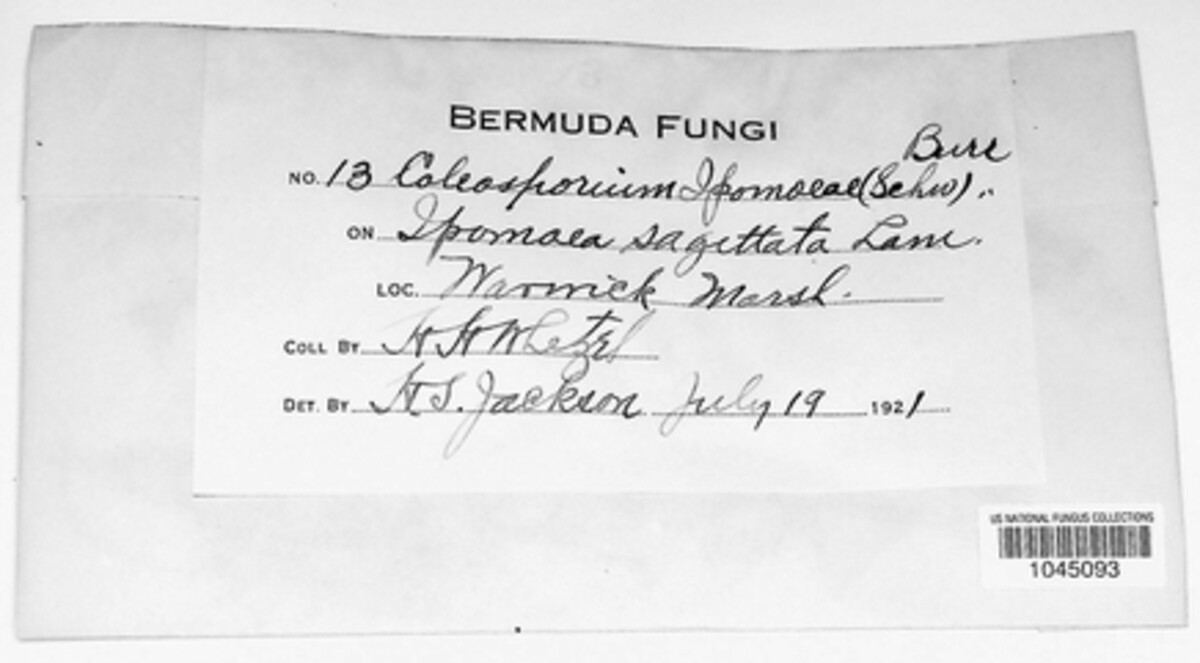 BERMUDA FUNGI
Burr
NO. 13 Coleosporium Ipomoeae (Schw) ..
ON Ipomoea sagittata Lam.
LOC. Warwick Marsh.
COLL BY H H Whetzel
DET. BY H S. Jackson July 19 1921
US NATIONAL FUNGUS COLLECTIONS
1045093